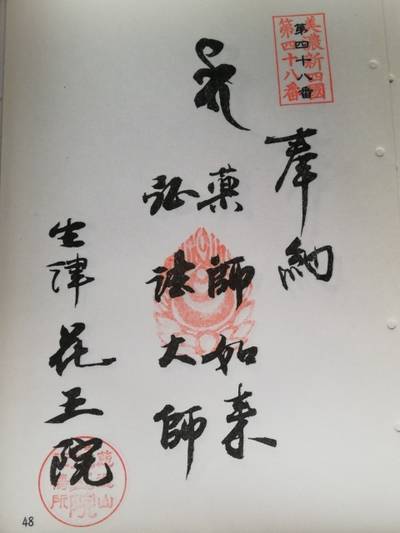 美濃新四國
第四十八番
第四十八番
奉納
薬師如来
弘法大師
生津 花王院
48